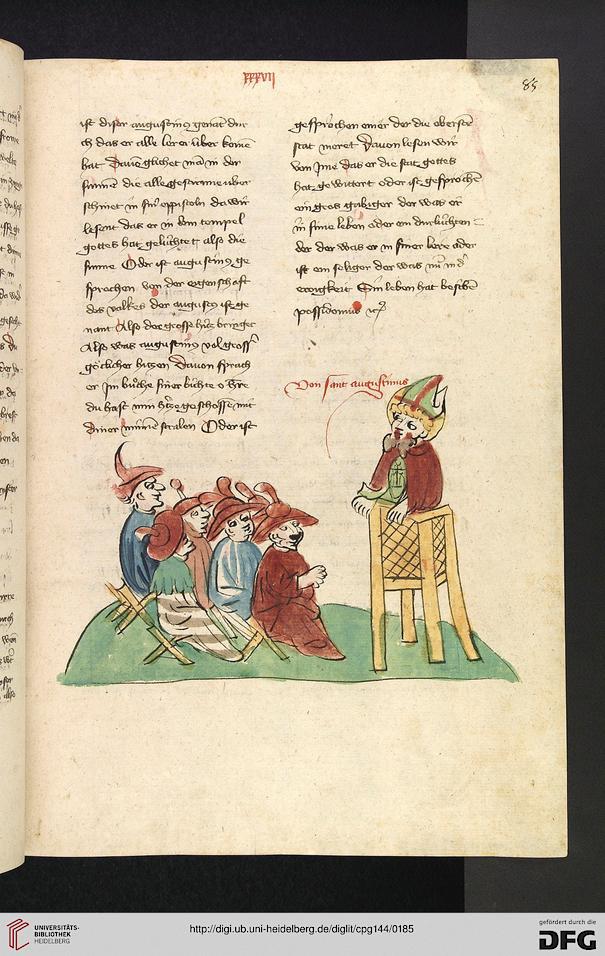 xxxvij
85
ist diser augustinus genāt dur
ch das er alle lerer über komē
hat Dauō glichet mā in der
sunnen die alle gestirne über
schinet in sin' eppistoln do wir
lesent das er in dem tempel
gottes hat gelüchtet also die
sunne Oder ist augustinus ge
sprochen von der eigenschaft
des volkes der augustus ist ge
nant Also der grosse hitz bringet
Also was augustinus vol gross'
götlicher hitzen Dauon sprach
er jm buͦche siner bichte o h're
du hast min h'tze geschossē mit
diner minnē stralen Oder ist
gesprochen einer der die oberste
stat meret Dauon lesen wir
von jme das er die stat gottes
hat gewittert oder ist gesprochē
ein gros gebiger der was er
in sime leben oder ein durlüchten
der der was er in siner lere oder
ist ein seliger der was in d'
ewigkeit Sin leben hat beschē
possidonius rc
Von sant augustinus
UNIVERSITÄTS-
BIBLIOTHEK
HEIDELBERG
http://digi.ub.uni-heidelberg.de/diglit/cpg144/0185
gefördert durch die
DFG